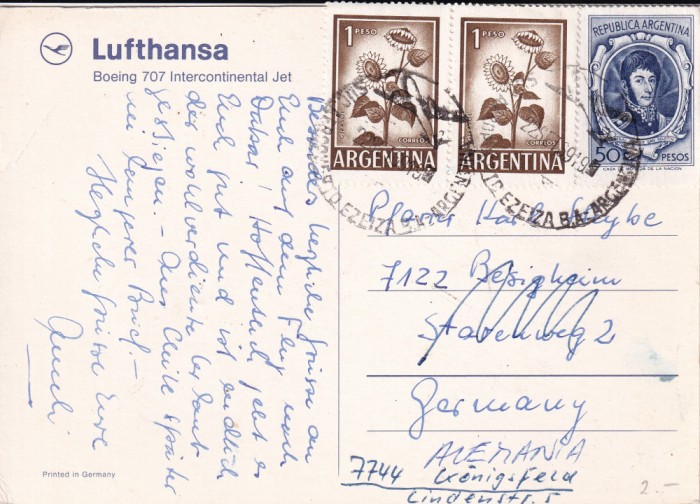 Lufthansa
Boeing 707 Intercontinental Jet
Besonders herzliche Grüsse an
Euch auf dem Flug nach
Dakar! Hoffentlich geht es
Euch gut und ist endlich
der wohlverdiente
gestiegen. – Aus Chile später
ein längerer Brief. –
Herzliche Grüsse Eure
Printed in Germany
1 PESO
GIRASOL
CORREOS
ARGENTINA
1 PESO
CORREOS
ARGENTINA
REPUBLICA ARGENTINA
50 PESOS
CASA DE MONEDA DE LA NACION
EZEIZA B.A. ARGENTINA
EZEIZA B.A. ARGENTINA
Pfarrer Karl
7122 Besigheim
Starenweg 2
Germany
ALEMANIA
7744 Königsfeld
Lindenstr. 5
2.-